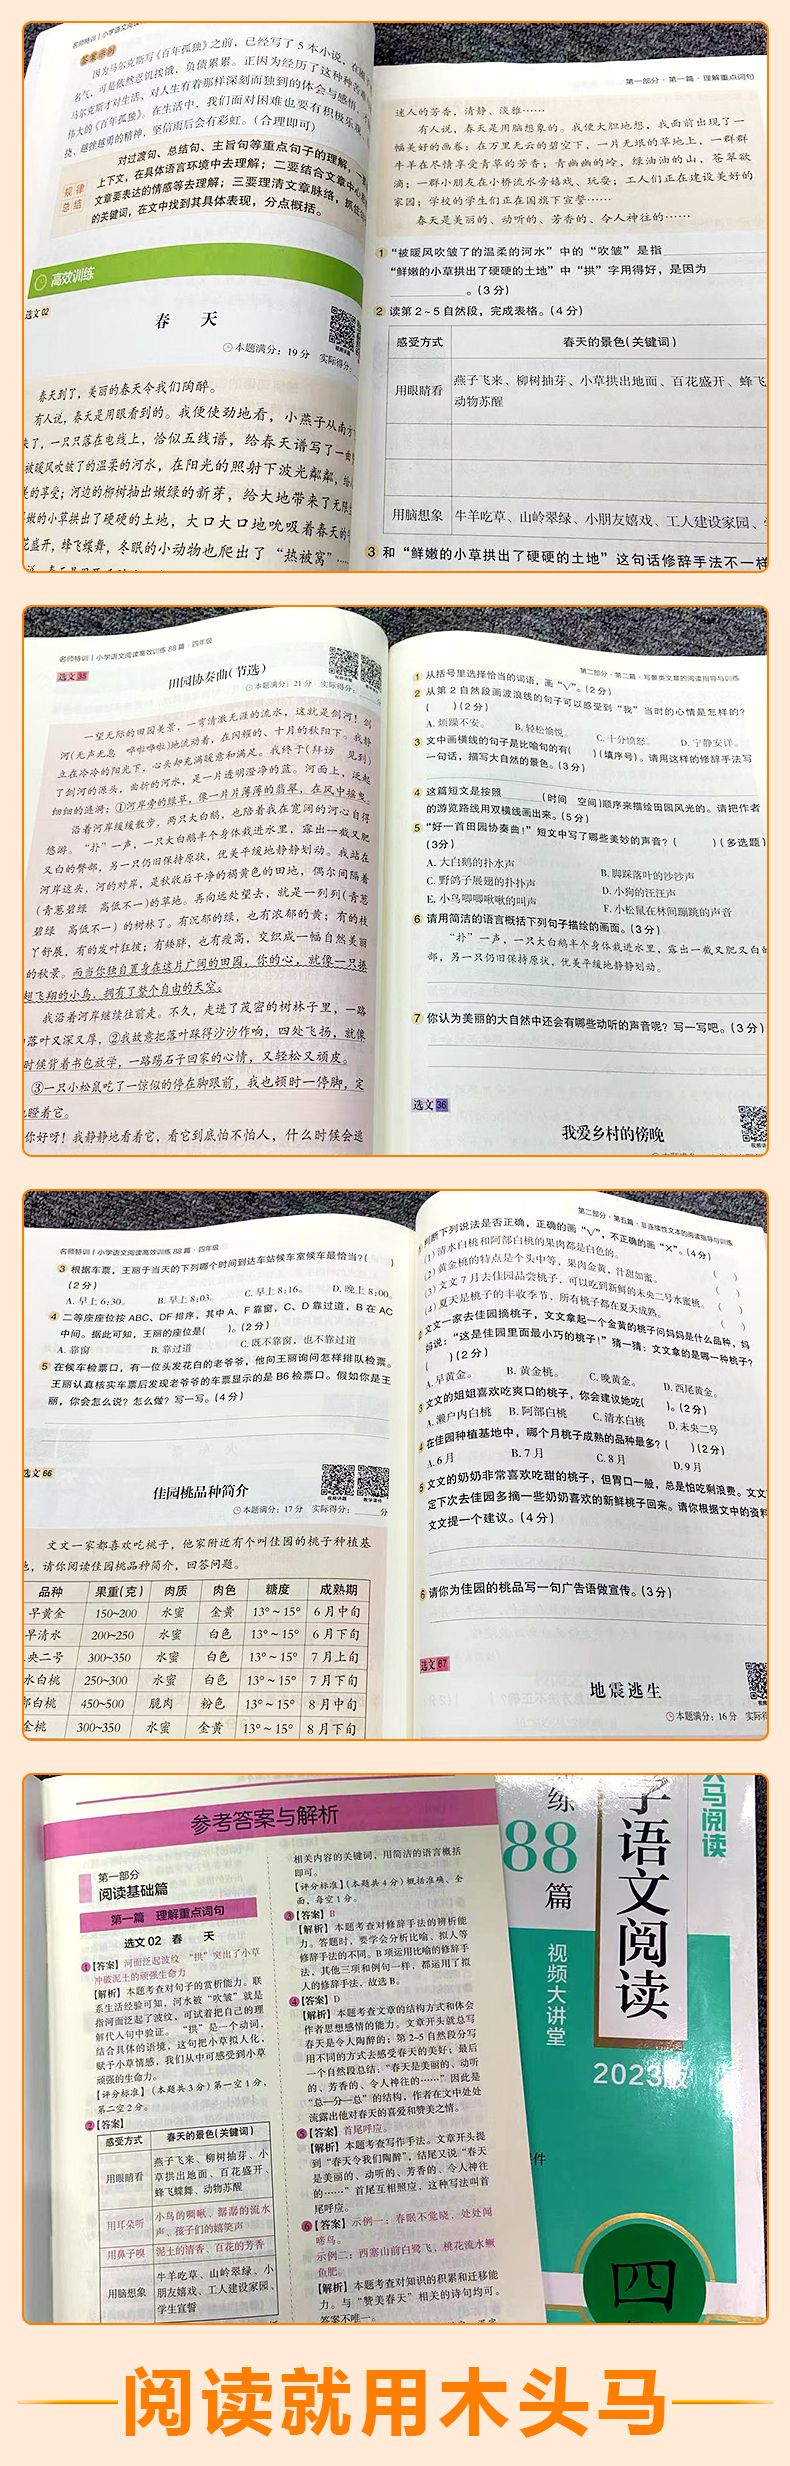 名师特训|小学语文阅读
答案示例
因为马尔克斯写《百年孤独》之前，已经写了5本小说，在
名气，可是依然忍饥挨饿，负债累累。正因为经历了这种种苦难
马尔克斯才对生活、对人生有着那样深刻而独到的体会与感悟，
伟大的《百年孤独》。在生活中，我们面对困难也要有积极乐观
挠、越挫越勇的精神，坚信雨后会有彩虹。（合理即可）
规律总结
对过渡句、总结句、主旨句等重点句子的理解，一要
上下文，在具体语言环境中去理解；二要结合文章中心
文章要表达的情感等去理解；三要理清文章脉络，抓住
的关键词，在文中找到其具体表现，分点概括。
高效训练
选文02
春 天
本题满分：19分 实际得分：
春天到了，美丽的春天令我们陶醉。
有人说，春天是用眼看到的。我便使劲地看，小燕子从南方
来了，一只只落在电线上，恰似五线谱，给春天谱写了一曲
被暖风吹皱了的温柔的河水，在阳光的照射下波光粼粼，给
美的享受；河边的柳树抽出嫩绿的新芽，给大地带来了无限
嫩的小草拱出了硬硬的土地，大口大口地吮吸着春天的
花盛开，蜂飞蝶舞，冬眠的小动物也爬出了“热被窝”……
第一部分·第一篇·理解重点词句
迷人的芳香，清静、淡雅……
有人说，春天是用脑想象的。我便大胆地想，我面前出现了一
幅美好的画卷：在万里无云的碧空下，一片无垠的草地上，一群群
牛羊在尽情享受青草的芳香；青幽幽的岭，绿油油的山，苍翠欲
滴；一群小朋友在小桥流水旁嬉戏、玩耍；工人们正在建设美好的
家园；学校的学生们正在国旗下宣誓……
春天是美丽的、动听的、芳香的、令人神往的……
1 “被暖风吹皱了的温柔的河水”中的“吹皱”是指
“鲜嫩的小草拱出了硬硬的土地”中“拱”字用得好，是因为
。（3分）
2 读第2~5自然段，完成表格。（4分）
感受方式 春天的景色（关键词）
用眼睛看 燕子飞来、柳树抽芽、小草拱出地面、百花盛开、蜂飞
动物苏醒
用脑想象 牛羊吃草、山岭翠绿、小朋友嬉戏、工人建设家园、
3 和“鲜嫩的小草拱出了硬硬的土地”这句话修辞手法不一样
名师特训|小学语文阅读高效训练88篇·四年级
选文35
田园协奏曲（节选）
本题满分：21分 实际得分：
一望无际的田园美景，一弯清澈无涯的流水，这就是剑河！剑
河（无声无息 哗啦哗啦）地流动着，在闪耀的、十月的秋阳下。我静
立在冷冷的阳光下，心头却充满暖意和满足。我终于（拜访 见到）
了剑河的源头，曲折的河水，是一片透明澄净的蓝。河面上，泛起
细细的涟漪；①河岸旁的绿草，像一片片薄薄的翡翠，在风中摇曳。
沿着河岸缓缓散步，两只大白鹅，也陪着我在宽阔的河心自得
悠游。“扑”一声，一只大白鹅半个身体栽进水里，露出一截又肥
又白的臀部，另一只仍旧保持原状，优美平缓地静静划动。我站在
河岸这头，河的对岸，是秋收后干净的褐黄色的田地，偶尔间隔着
（青葱碧绿 高低不一）的草地。再向远处望去，就是一列列（青葱
碧绿 高低不一）的树林了。有沉郁的绿，也有浓郁的黄；有的枝
丫舒展，有的发叶狂披；有矮胖，也有瘦高，交织成一幅自然美丽
的秋景。而当你独自置身在这片广阔的田园，你的心，就像一只振
翅飞翔的小鸟，拥有了整个自由的天空。
我沿着河岸继续往前走。不久，走进了茂密的树林子里，一路
落叶又深又厚，②我故意把落叶踩得沙沙作响，四处飞扬，就像
时候背着书包放学，一路踢石子回家的心情，又轻松又顽皮。
③一只小松鼠吃了一惊似的停在脚跟前，我也顿时一停脚，定
瞪着它。
你好呀！我静静地看着它，看它到底怕不怕人，什么时候会逃
第二部分·第二篇·写景类文章的阅读指导与训练
1 从括号里选择恰当的词语，画“√”。（2分）
2 从第2自然段画波浪线的句子可以感受到“我”当时的心情是怎样的？
（ ）（2分）
A. 烦躁不安。 B. 轻松愉悦。 C. 十分愤怒。 D. 宁静安详。
3 文中画横线的句子是比喻句的有（ ）（填序号）。请用这样的修辞手法写
一句话，描写大自然的景色。（3分）
4 这篇短文是按照 （时间 空间）顺序来描绘田园风光的。请把作者
的游览路线用双横线画出来。（5分）
5 “好一首田园协奏曲！”短文中写了哪些美妙的声音？（ ）（多选题）
（3分）
A. 大白鹅的扑水声 B. 脚踩落叶的沙沙声
C. 野鸽子展翅的扑扑声 D. 小狗的汪汪声
E. 小鸟唧唧啾啾的叫声 F. 小松鼠在林间蹦跳的声音
6 请用简洁的语言概括下列句子描绘的画面。（3分）
“扑”一声，一只大白鹅半个身体栽进水里，露出一截又肥又白的
部，另一只仍旧保持原状，优美平缓地静静划动。
7 你认为美丽的大自然中还会有哪些动听的声音呢？写一写吧。（3分）
选文36
我爱乡村的傍晚
名师特训|小学语文阅读高效训练88篇·四年级
3 根据车票，王丽于当天的下列哪个时间到达车站候车室候车最恰当？（
（2分）
A. 早上6:30。 B. 早上8:03。 C. 早上8:16。 D. 晚上8:00。
4 二等座座位按ABC、DF排序，其中A、F靠窗，C、D靠过道，B在AC
中间。据此可知，王丽的座位是（ ）。（2分）
A. 靠窗 B. 靠过道 C. 既不靠窗，也不靠过道
5 在候车检票口，有一位头发花白的老爷爷，他向王丽询问怎样排队检票。
王丽认真核实车票后发现老爷爷的车票显示的是B6检票口。假如你是王
丽，你会怎么说？怎么做？写一写。（4分）
选文66
佳园桃品种简介
视频讲题 教学课件
本题满分：17分 实际得分： 分
文文一家都喜欢吃桃子，他家附近有个叫佳园的桃子种植基
地，请你阅读佳园桃品种简介，回答问题。
品种 果重（克） 肉质 肉色 糖度 成熟期
早黄金 150~200 水蜜 金黄 13°~15° 6月中旬
早清水 200~250 水蜜 白色 13°~15° 6月下旬
央二号 300~350 水蜜 白色 13°~15° 7月上旬
水白桃 250~300 水蜜 白色 13°~15° 7月下旬
部白桃 450~500 脆肉 粉色 13°~15° 8月中旬
金桃 300~350 水蜜 金黄 13°~15° 8月下旬
第二部分·第五篇·非连续性文本的阅读指导与训练
1 判断下列说法是否正确，正确的画“√”，不正确的画“×”。（4分）
（1）清水白桃和阿部白桃的果肉都是白色的。 （ ）
（2）黄金桃的特点是个头中等，果肉金黄，汁甜如蜜。 （ ）
（3）文文7月去佳园品尝桃子，可以吃到新鲜的未央二号水蜜桃。（ ）
（4）夏天是桃子的丰收季节，所有桃子都在夏天成熟。 （ ）
2 文文一家去佳园摘桃子，文文拿起一个金黄的桃子问妈妈是什么品种，妈
妈说：“这是佳园里面最小巧的桃子！”猜一猜：文文拿的是哪一种桃子？
（ ）（2分）
A. 早黄金。 B. 黄金桃。 C. 晚黄金。 D. 西尾黄金。
3 文文的姐姐喜欢吃爽口的桃子，你会建议她吃（ ）。（2分）
A. 濑户内白桃 B. 阿部白桃 C. 清水白桃 D. 未央二号
4 在佳园种植基地中，哪个月桃子成熟的品种最多？（ ）（2分）
A. 6月 B. 7月 C. 8月 D. 9月
5 文文的奶奶非常喜欢吃甜的桃子，但胃口一般，总是怕吃剩浪费。文文
定下次去佳园多摘一些奶奶喜欢的新鲜桃子回来。请你根据文中的资料
文文提一个建议。（4分）
6 请你为佳园的桃品写一句广告语做宣传。（3分）
选文67
地震逃生
本题满分：16分 实际得
参考答案与解析
第一部分
阅读基础篇
第一篇 理解重点词句
选文02 春 天
1【答案】河面泛起波纹 “拱”突出了小草
冲破泥土的顽强生命力
【解析】本题考查对句子的赏析能力。联
系生活经验可知，河水被“吹皱”就是
指河面泛起了波纹，可试着把自己的理
解代入句中验证。“拱”是一个动词，
结合具体的语境，这句把小草拟人化，
赋予小草情感，我们从中可感受到小草
顽强的生命力。
【评分标准】（本题共3分）第一空1分，
第二空2分。
2【答案】
感受方式 春天的景色（关键词）
用眼睛看 燕子飞来、柳树抽芽、小
草拱出地面、百花盛开、
蜂飞蝶舞、动物苏醒
用耳朵听 小鸟的啁啾、潺潺的流水
声、孩子们的嬉笑声
用鼻子嗅 泥土的清香、百花的芳香
用脑想象 牛羊吃草、山岭翠绿、小
朋友嬉戏、工人建设家园、
学生宣誓
相关内容的关键词，用简洁的语言概括
即可。
【评分标准】（本题共4分）概括准确、全
面，每空1分。
3【答案】B
【解析】本题考查对修辞手法的辨析能
力。答题时，要学会分析比喻、拟人等
修辞手法的不同。B项运用比喻的修辞手
法，其他三项和例句一样，都运用了拟
人的修辞手法，故选B。
4【答案】D
【解析】本题考查文章的结构方式和体会
作者思想感情的能力。文章开头就总写
春天是令人陶醉的；第2~5自然段分写
用不同的方式去感受春天的美好；最后
一个自然段总结，“春天是美丽的、动听
的、芳香的、令人神往的……”因此是
“总—分—总”的结构，作者在文中处处
流露出他对春天的喜爱和赞美之情。
5【答案】首尾呼应。
【解析】本题考查写作手法。文章开头提
到“春天令我们陶醉”，结尾又说“春天
是美丽的、动听的、芳香的、令人神往
的……”首尾互相照应，这种写法叫首
尾呼应。
6【答案】示例一：春眠不觉晓，处处闻
啼鸟。
示例二：西塞山前白鹭飞，桃花流水鳜
鱼肥。
【解析】本题考查对知识的积累和迁移能
力。与“赞美春天”相关的诗句均可。
答案不唯一。
马阅读
学语文阅读
练88篇
视频大讲堂
2023版
四
阅读就用木头马